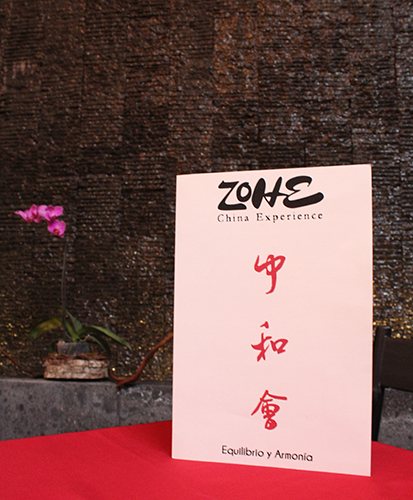 ZOHE
China Experience
中
和
會
Equilibrio y Armonía